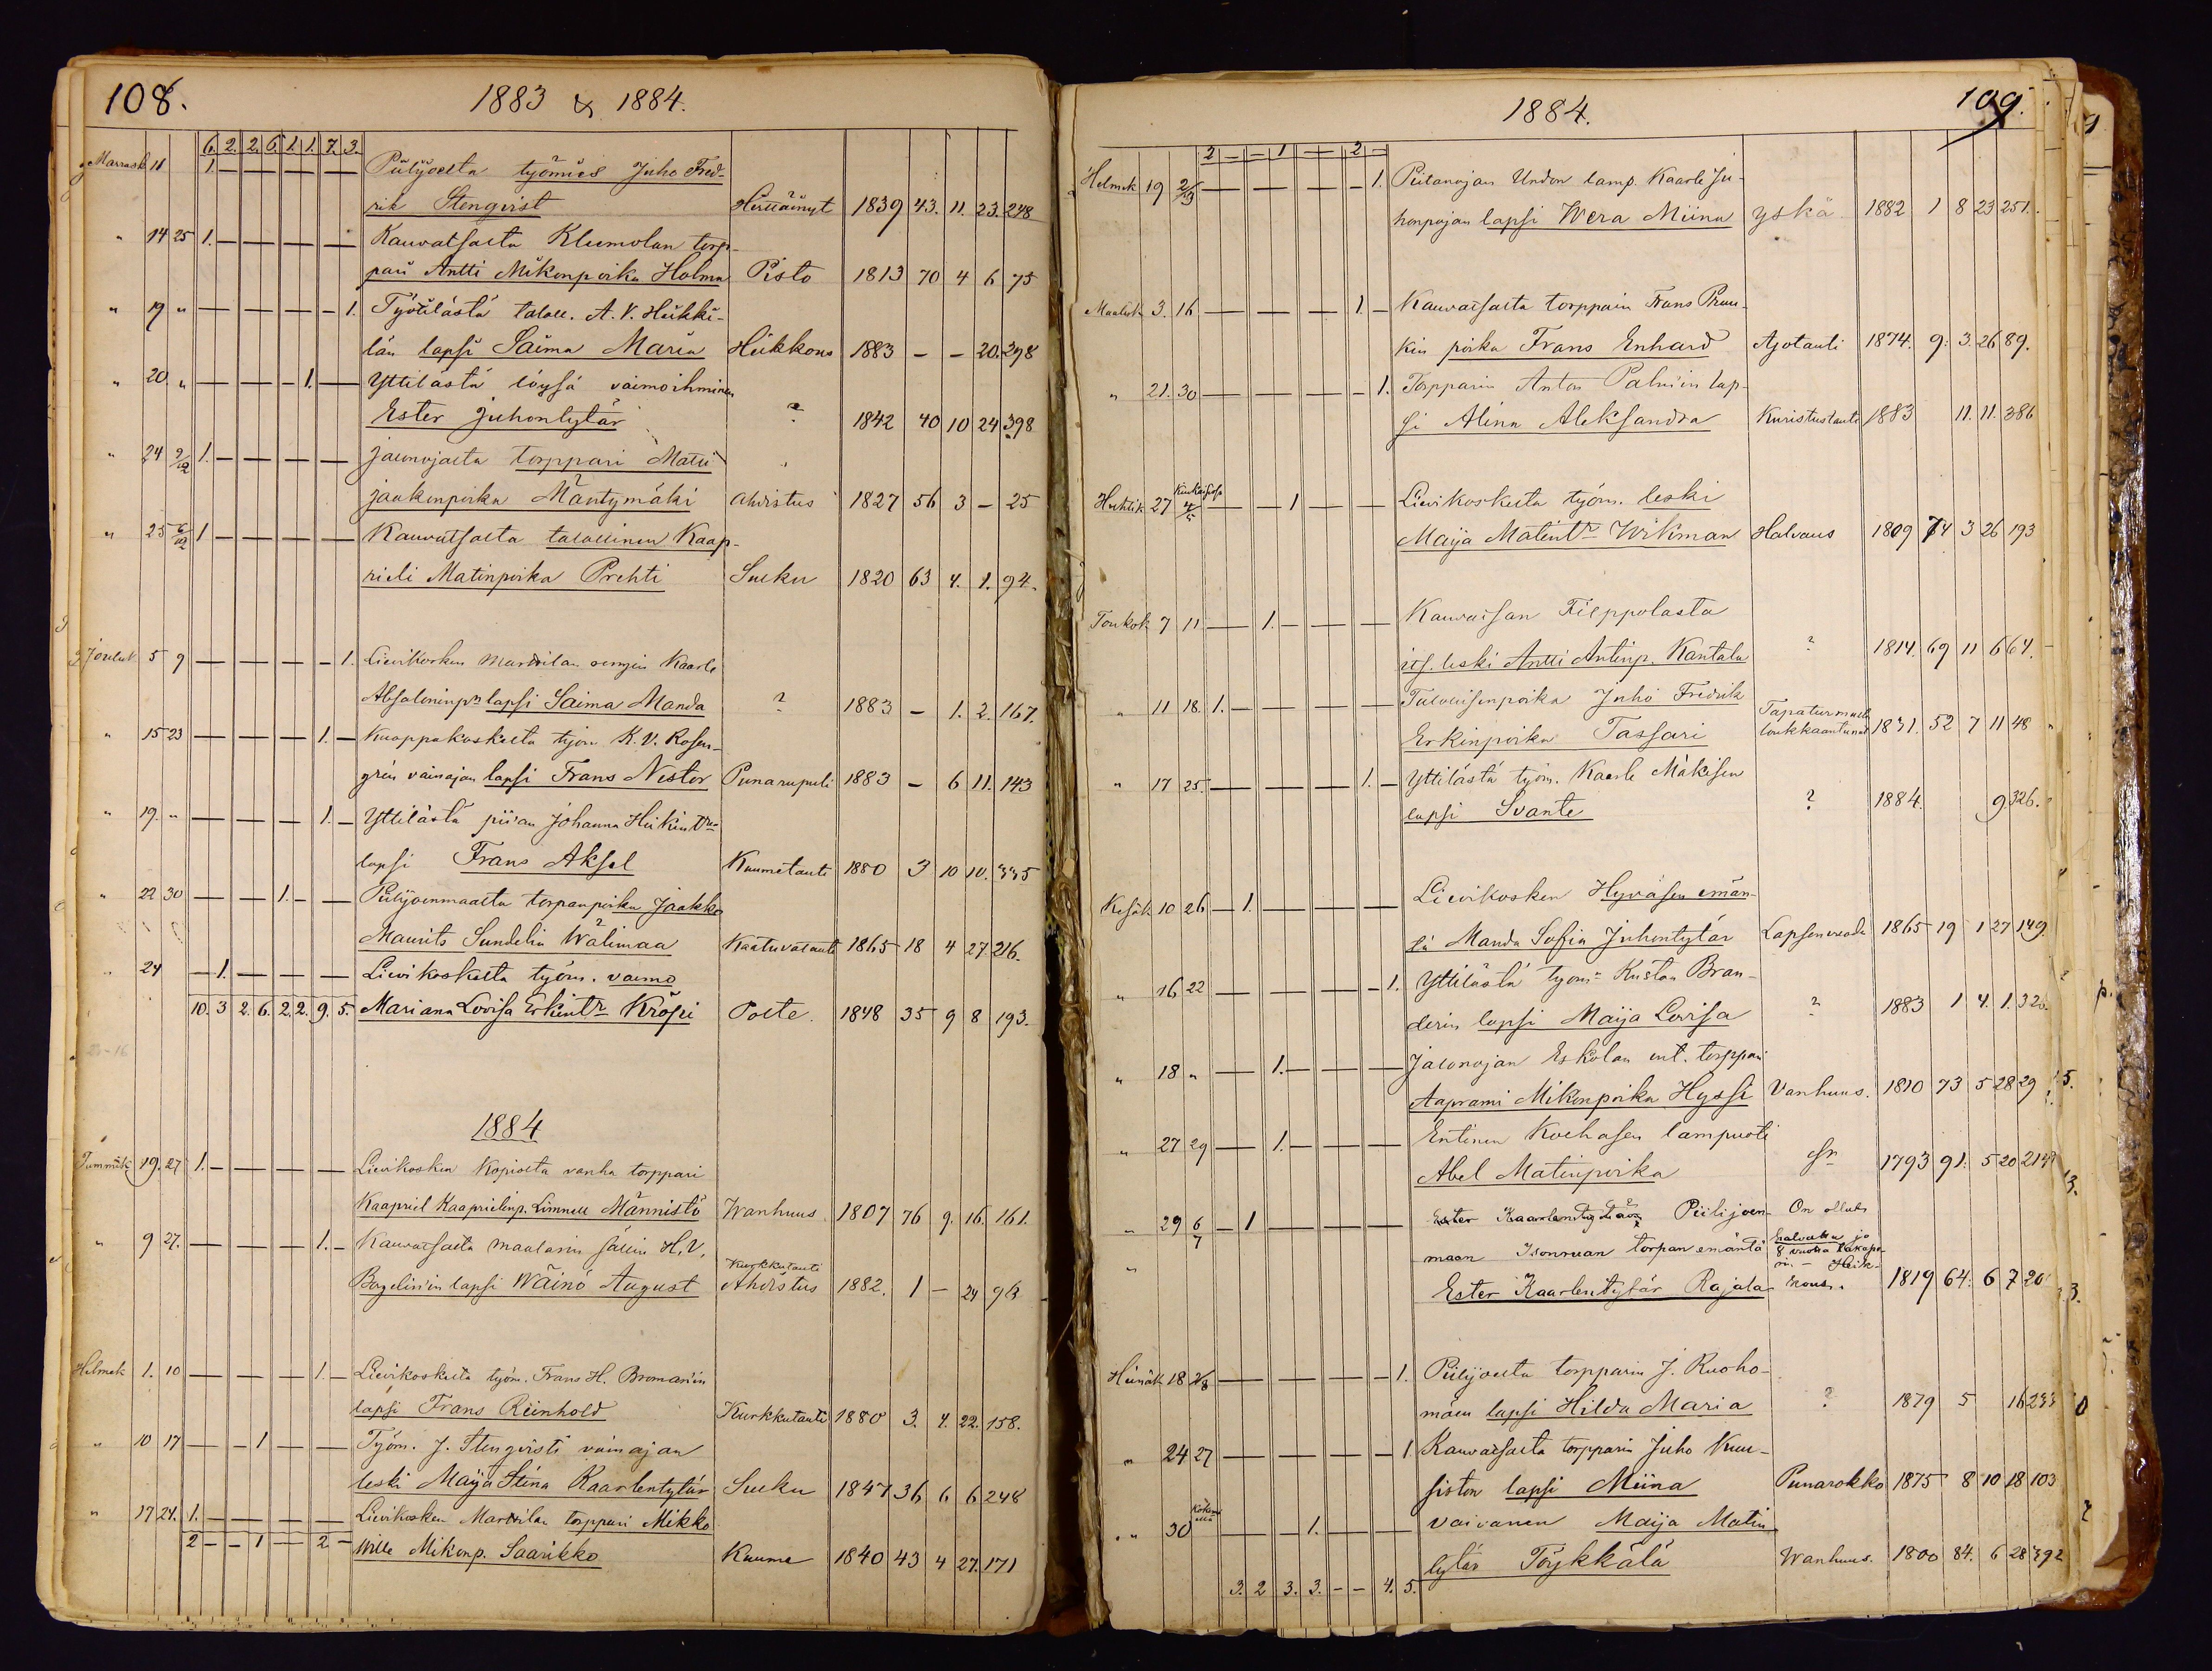 108.
1883 & 1884.
6. 2. 2. 6. 1. 1. 7. 3.
Marrask. 11 1. — — — — Piilijoelta työmies Juho Fred-
rik Stenqvist Hirttäinyt 1839 43. 11. 23. 248
" 14 25 1. — — — — Kauvatsalta Kleemolan torp-
pari Antti Mikonpoika Holma Pisto 1813 70 4 6 75
" 19 " — — — — — 1. Työtilästä taloll. A. V. Heikki-
län lapsi Saima Maria Heikkous 1883 — — 20. 298
" 20. " — — — — 1. — Yttilästä löysä vaimoihminen
Ester Juhontytär ? 1842 40 10 24 398
" 24 2/12 1. — — — — Jalonojalta torppari Matti
Jaakonpoika Mäntymäki Ahdistus 1827 56 3 — 25
" 25 6/12 1 — — — — Kauvatsalta talollinen Kaap-
rieli Matinpoika Prehti Sueku 1820 63 4. 1. 94.
Jouluk. 5 9 — — — — — 1. Lievikosken Marttilan rengin Kaarle
Absaloninp:n lapsi Saima Manda ? 1883 — 1. 2. 167.
" 15 23 — — — — 1. — Kuoppakoskelta työm. K. V. Rosen-
grén vainajan lapsi Frans Nestor Punarupuli 1883 — 6 11. 143
" 19. " — — — — 1. — Yttilästä piian Johanna Heikint:en
lapsi Frans Aksel Kuumetauti 1880 3 10 10. 335
" 22 30 — — 1. — — Piilijoenmaalta torpanpoika Jaakko
Maurits Sundelin Wälimaa Kaatuvatauti 1865 18 4 27. 216.
" 24 — 1. — — — — Lievikoskelta työm. vaimo
10. 3 2. 6. 2. 2. 9. 5. Mariana Lovisa Erkint:r Kröpi Polte. 1848 35 9 8 193.
1884
Tammik. 19. 27 1. — — — — Lievikosken Kopiolta vanha torppari
Kaapriel Kaaprielinp. Limnell Männistö Wanhuus 1807 76 9. 16. 161.
" 9 27. — — — — 1. — Kauvatsalta maalarin sällin H. V.
Bogelin'in lapsi Wäinö August Kurkkutauti Ahdistus 1882. 1 — 24 98
Helmek. 1. 10 — — — — 1. — Lievikoskelta työm. Frans H. Broman'in
lapsi Frans Reinhold Kurkkutauti 1880 3. 4. 22. 158.
" 10 17 — — 1 — — Työm. J. Stenqvisti vainajan
leski Maija Stina Kaarlentytär Sueku 1847 36 6 6 248
" 17 24. 1. — — — — Lievikosken Marttilan torppari Mikko
2 — — 1 — 2 — Wille Mikonp. Saarikko Kuume 1840 43 4 27. 171
109.
1884.
2 — — 1 — 2 —
Helmek 19 2/3 — — — — — 1. Piilanojan Undon lamp. Kaarle Ju-
honpojan lapsi Wera Miina yskä 1882 1 8 23 251.
Maalisk. 3. 16 — — — — 1. — Kauvatsalta torpparin Frans Pruu-
kin poika Frans Enhard Ajotauti 1874. 9. 3. 26 89.
" 21. 30 — — — — — 1. Torpparin Anton Palmin lap-
si Alina Aleksandra Kuristustauti 1883 11. 11. 386
Huhtik 27 4/5 — — 1 — — Lievikoskelta työm. leski
Maija Matint:r Wikman Halvaus 1809 74 3 26 193
Toukok 7 11 — 1. — — — Kauvatsan Fileppolasta
its. leski Antti Antinp. Kantala ? 1814. 69 11 6 64.
" 11 18. 1. — — — — Talollisenpoika Juho Fredrik
Erkinpoika Tassari Tapaturmasta loukkaantunut 1831. 52 7 11 48
" 17 25. — — — — 1. — Yttilästä työm. Kaarle Mäkisen
lapsi Svante ? 1884. 9 326.
Kesäk 10 26 — 1. — — — — Lievikosken Hyväsen emän-
tä Manda Sofia Juhontytär Lapsenvuode 1865 19 1 27 149.
" 16 22 — — — — — 1. Yttilästä työm: Kustaa Bran-
derin lapsi Maija Lovisa ? 1883 1 4. 1. 320.
" 18 " — 1. — — — Jalonojan Eskolan ent. torppari
Aaprami Mikonpoika Hyssi Vanhuus. 1810 73 5 28 29
" 27 29 — 1. — — — Entinen Koehasen lampuoti
Abel Matinpoika 1793 91. 5 20 214
" 29 6/7 — 1 — — — Ester Kaarlentytär Piilijoen- On ollut
maan Isonruan torpan emäntä halvattu jo 8 vuotta takape-
Ester Kaarlentytär Rajala rin. – Heikkous. 1819 64. 6 7 20
Heinäk 18 — — — — — 1. Piilijoelta torpparin J. Ruoho-
mäen lapsi Hilda Maria ? 1879 5 16 233
" 24 27 — — — — — 1 Kauvatsalta torpparin Juho Kuu-
siston lapsi Miina Punarokko 1875 8 10 18 103
" 30 — — 1. — — vaivanen Maija Matin
tytär Töykkälä Wanhuus. 1800 84. 6 28 392
3. 2 3. 3. — — 4. 5.